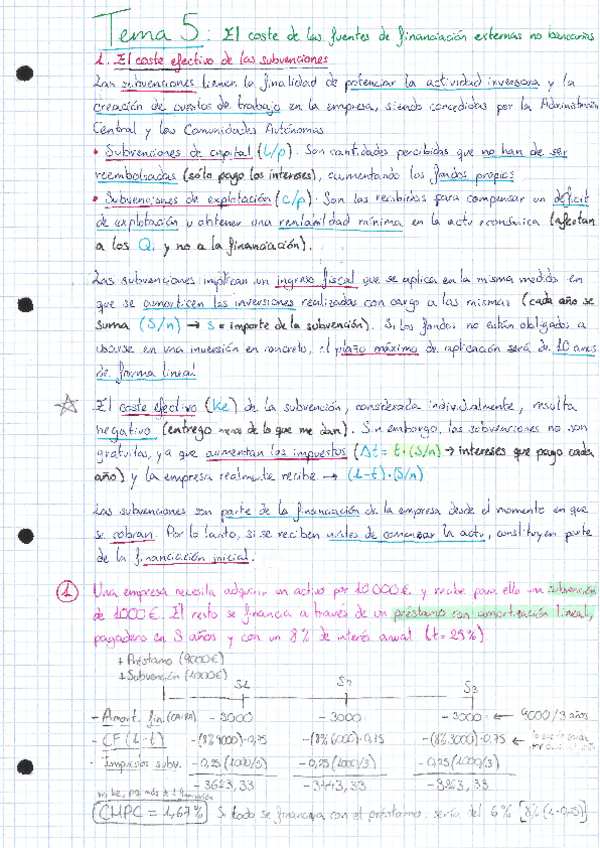 Tema 5: El coste de las fuentes de financiación externas no bancarias
1. El coste efectivo de las subvenciones
Las subvenciones tienen la finalidad de potenciar la actividad inversora y la
creación de puestos de trabajo en la empresa, siendo concedidas por la Administración
Central y las Comunidades Autónomas
• Subvenciones de capital (L/p). Son cantidades percibidas que no han de ser
reembolsadas (sólo pago los intereses), aumentando los fondos propios
• Subvenciones de explotación (C/p). Son las recibidas para compensar un déficit
de explotación u obtener una rentabilidad mínima en la actv económica (afectan
a los Qi y no a la financiación).
Las subvenciones implican un ingreso fiscal que se aplica en la misma medida en
que se amorticen las inversiones realizadas con cargo a las mismas (cada año se
suma (S/n) → S = importe de la subvención). Si los fondos no están obligados a
usarse en una inversión en concreto, el plazo máximo de aplicación será de 10 años
de forma lineal
El coste efectivo (Ke) de la subvención, considerada individualmente, resulta
negativo (entrego menos de lo que me dan). Sin embargo, las subvenciones no son
gratuitas, ya que aumentan los impuestos (Δt = t·(S/n) → intereses que pago cada
año) y la empresa realmente recibe → (1-t)·(S/n)
Las subvenciones son parte de la financiación de la empresa desde el momento en que
se cobran. Por lo tanto, si se reciben antes de comenzar la actv, constituyen parte
de la financiación inicial.
1 Una empresa necesita adquirir un activo por 10000€ y recibe para ello una subvención
de 1000€. El resto se financia a través de un préstamo con amortización lineal,
pagadero en 3 años y con un 8% de interés anual (t=25%)
+ Préstamo (9000€)
+ Subvención (1000€)
S1 S2 S3
- Amort. fin. -3000 -3000 -3000 ← 9000/3 años
- CF (1-t) -(8% 9000)·0,75 -(8% 6000)·0,75 -(8% 3000)·0,75 ←
- Impuestos subv. -0,25(1000/3) -0,25(1000/3) -0,25(1000/3)
-3623,33 -3443,33 -3263,33
CMPC = 1,67% Si todo se financiara con el préstamo sería del 6% [8%(1-0,25)]